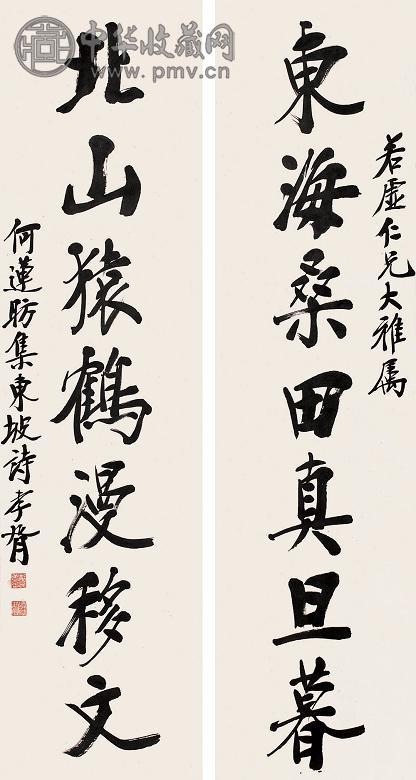 若虚仁兄大雅属
東海桑田真旦暮
北山猿鶴漫移文
何蓮舫集東坡詩孝胥
中华收藏网
www.pmv.cn